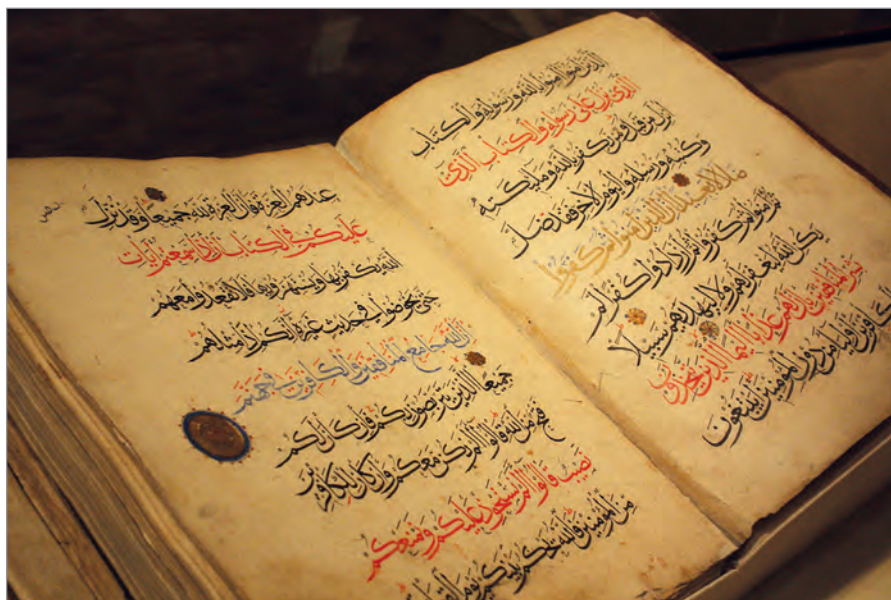 الذين آمنوا آمنوا بالله ورسوله والكتاب
الذي نزل على رسوله والكتاب الذي
أنزل من قبل ومن يكفر بالله وملائكته
وكتبه ورسله واليوم الآخر فقد ضل
ضلالا بعيدا إن الذين آمنوا ثم كفروا
ثم آمنوا ثم كفروا ثم ازدادوا كفرا لم
يكن الله ليغفر لهم ولا ليهديهم سبيلا
بشر المنافقين بأن لهم عذابا أليما الذين يتخذون
الكافرين أولياء من دون المؤمنين أيبتغون
عندهم العزة فإن العزة لله جميعا وقد نزل
عليكم في الكتاب أن إذا سمعتم آيات
الله يكفر بها ويستهزأ بها فلا تقعدوا معهم
حتى يخوضوا في حديث غيره إنكم إذا مثلهم
إن الله جامع المنافقين والكافرين في جهنم
جميعا الذين يتربصون بكم فإن كان لكم
فتح من الله قالوا ألم نكن معكم وإن كان للكافرين
نصيب قالوا ألم نستحوذ عليكم ونمنعكم
من المؤمنين فالله يحكم بينكم يوم